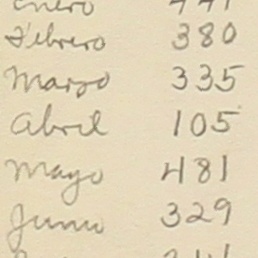 Enero
Febrero 380
Marzo 335
Abril 105
Mayo 481
Junio 329